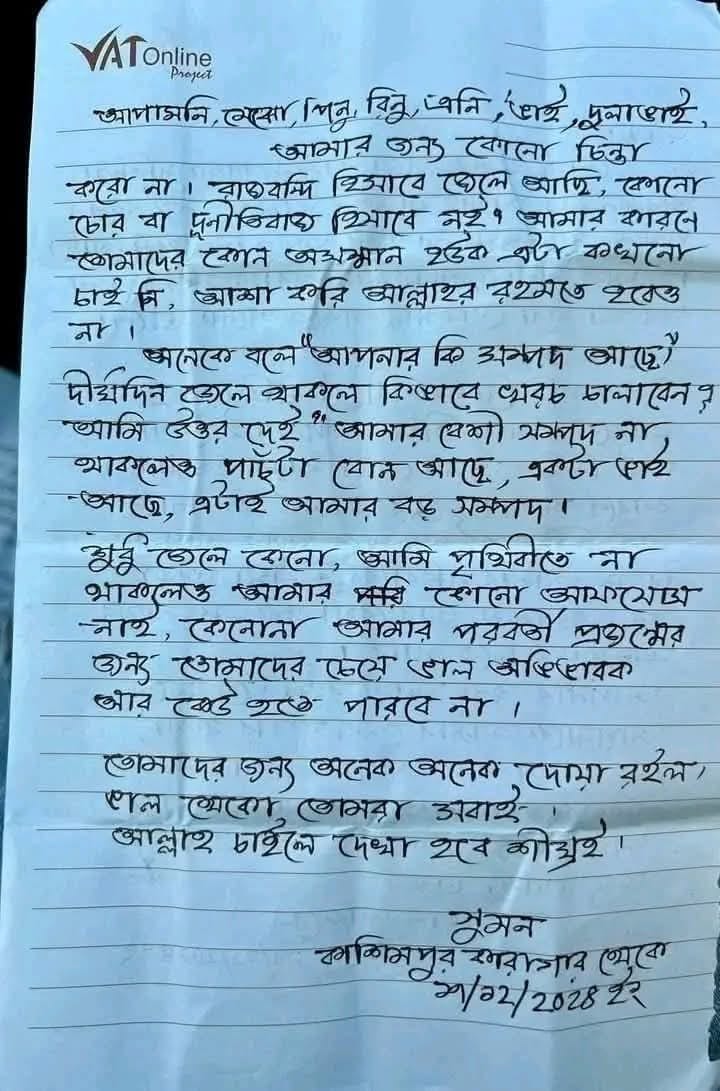 VAT Online
Project
আপামনি, মেঝো, পিনু, রিনু, এনি, ভাই, দুলাভাই,
আমার জন্য কোনো চিন্তা
করো না। রাজবন্দি হিসাবে জেলে আছি, কোনো
চোর বা দুর্নীতিবাজ হিসাবে নই। আমার কারনে
তোমাদের কোন অসম্মান হউক এটা কখনো
চাই নি, আশা করি আল্লাহর রহমতে হবেও
না।
অনেকে বলে "আপনার কি সম্পদ আছে?
দীর্ঘদিন জেলে থাকলে কিভাবে খরচ চালাবেন?
আমি উত্তর দেই "আমার বেশী সম্পদ না
থাকলেও পাঁচটা বোন আছে, একটা ভাই
আছে, এটাই আমার বড় সম্পদ।
শুধু জেলে কেনো, আমি পৃথিবীতে না
থাকলেও আমার কোনো আফসোস
নাই, কেনোনা আমার পরবর্তী প্রজন্মের
জন্য তোমাদের চেয়ে ভাল অভিভাবক
আর কেউ হতে পারবে না।
তোমাদের জন্য অনেক অনেক দোয়া রইল,
ভাল থেকো তোমরা সবাই।
আল্লাহ চাইলে দেখা হবে শীঘ্রই।
সুমন
কাশিমপুর কারাগার থেকে
/১২/২০২৪ ইং